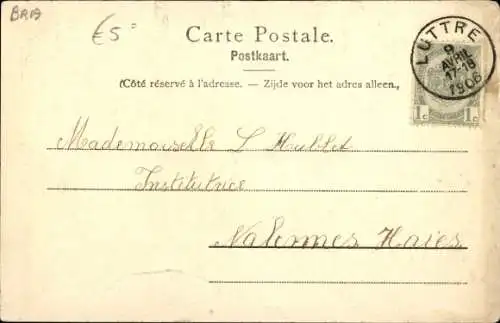 BRA
€5=
Carte Postale.
Postkaart.
(Côté réservé à l'adresse. — Zijde voor het adres alleen.,
LUTTRE
9
AVRIL
17-18
1906
1c 1c
Mademoiselle L Hublet
Institutrice
Nalinnes Haies